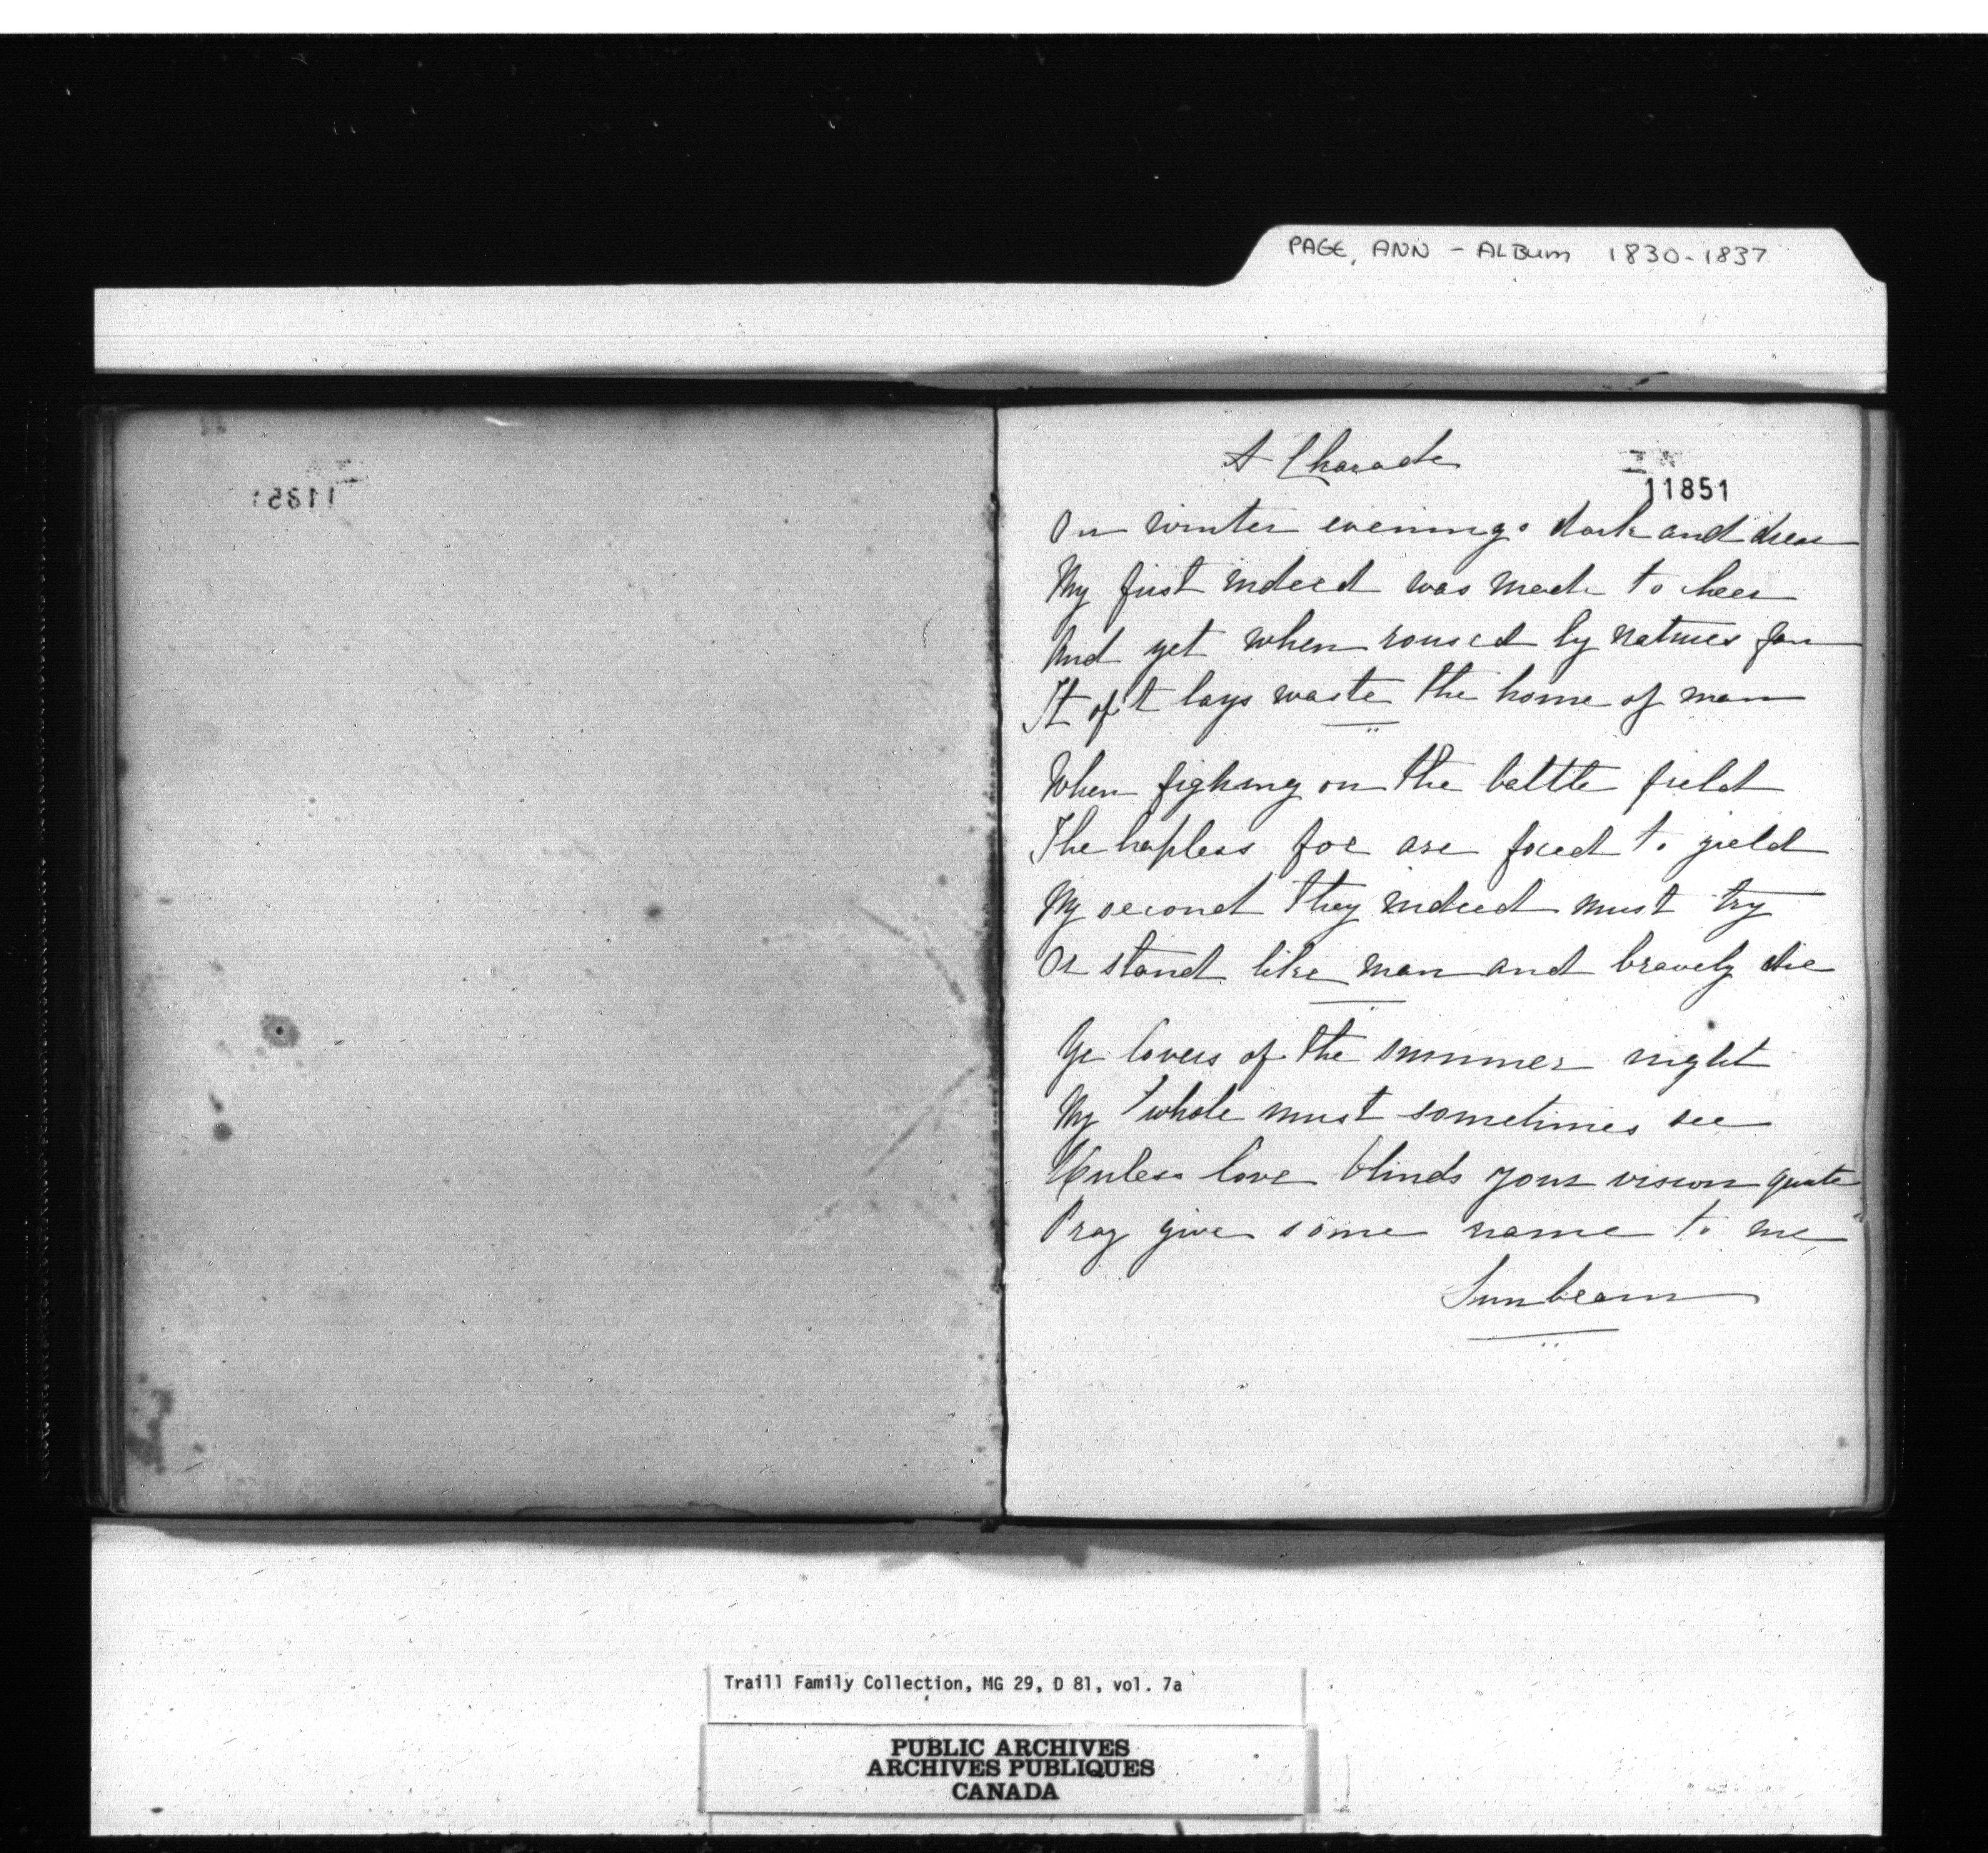 PAGE, ANN - ALBUM 1830-1837
A Charade
11851
On winter evenings dark and drear
My first indeed was made to cheer
And yet when roused by natures fan
It oft lays waste the home of man
When fighting on the battle field
The hapless foe are forced to yield
My second they indeed must try
Or stand like man and bravely die
Ye lovers of the summer night
My whole must sometimes see
Unless love blinds your vision quite
Pray give some name to me
Sunbeam
Traill Family Collection, MG 29, D 81, vol. 7a
PUBLIC ARCHIVES
ARCHIVES PUBLIQUES
CANADA